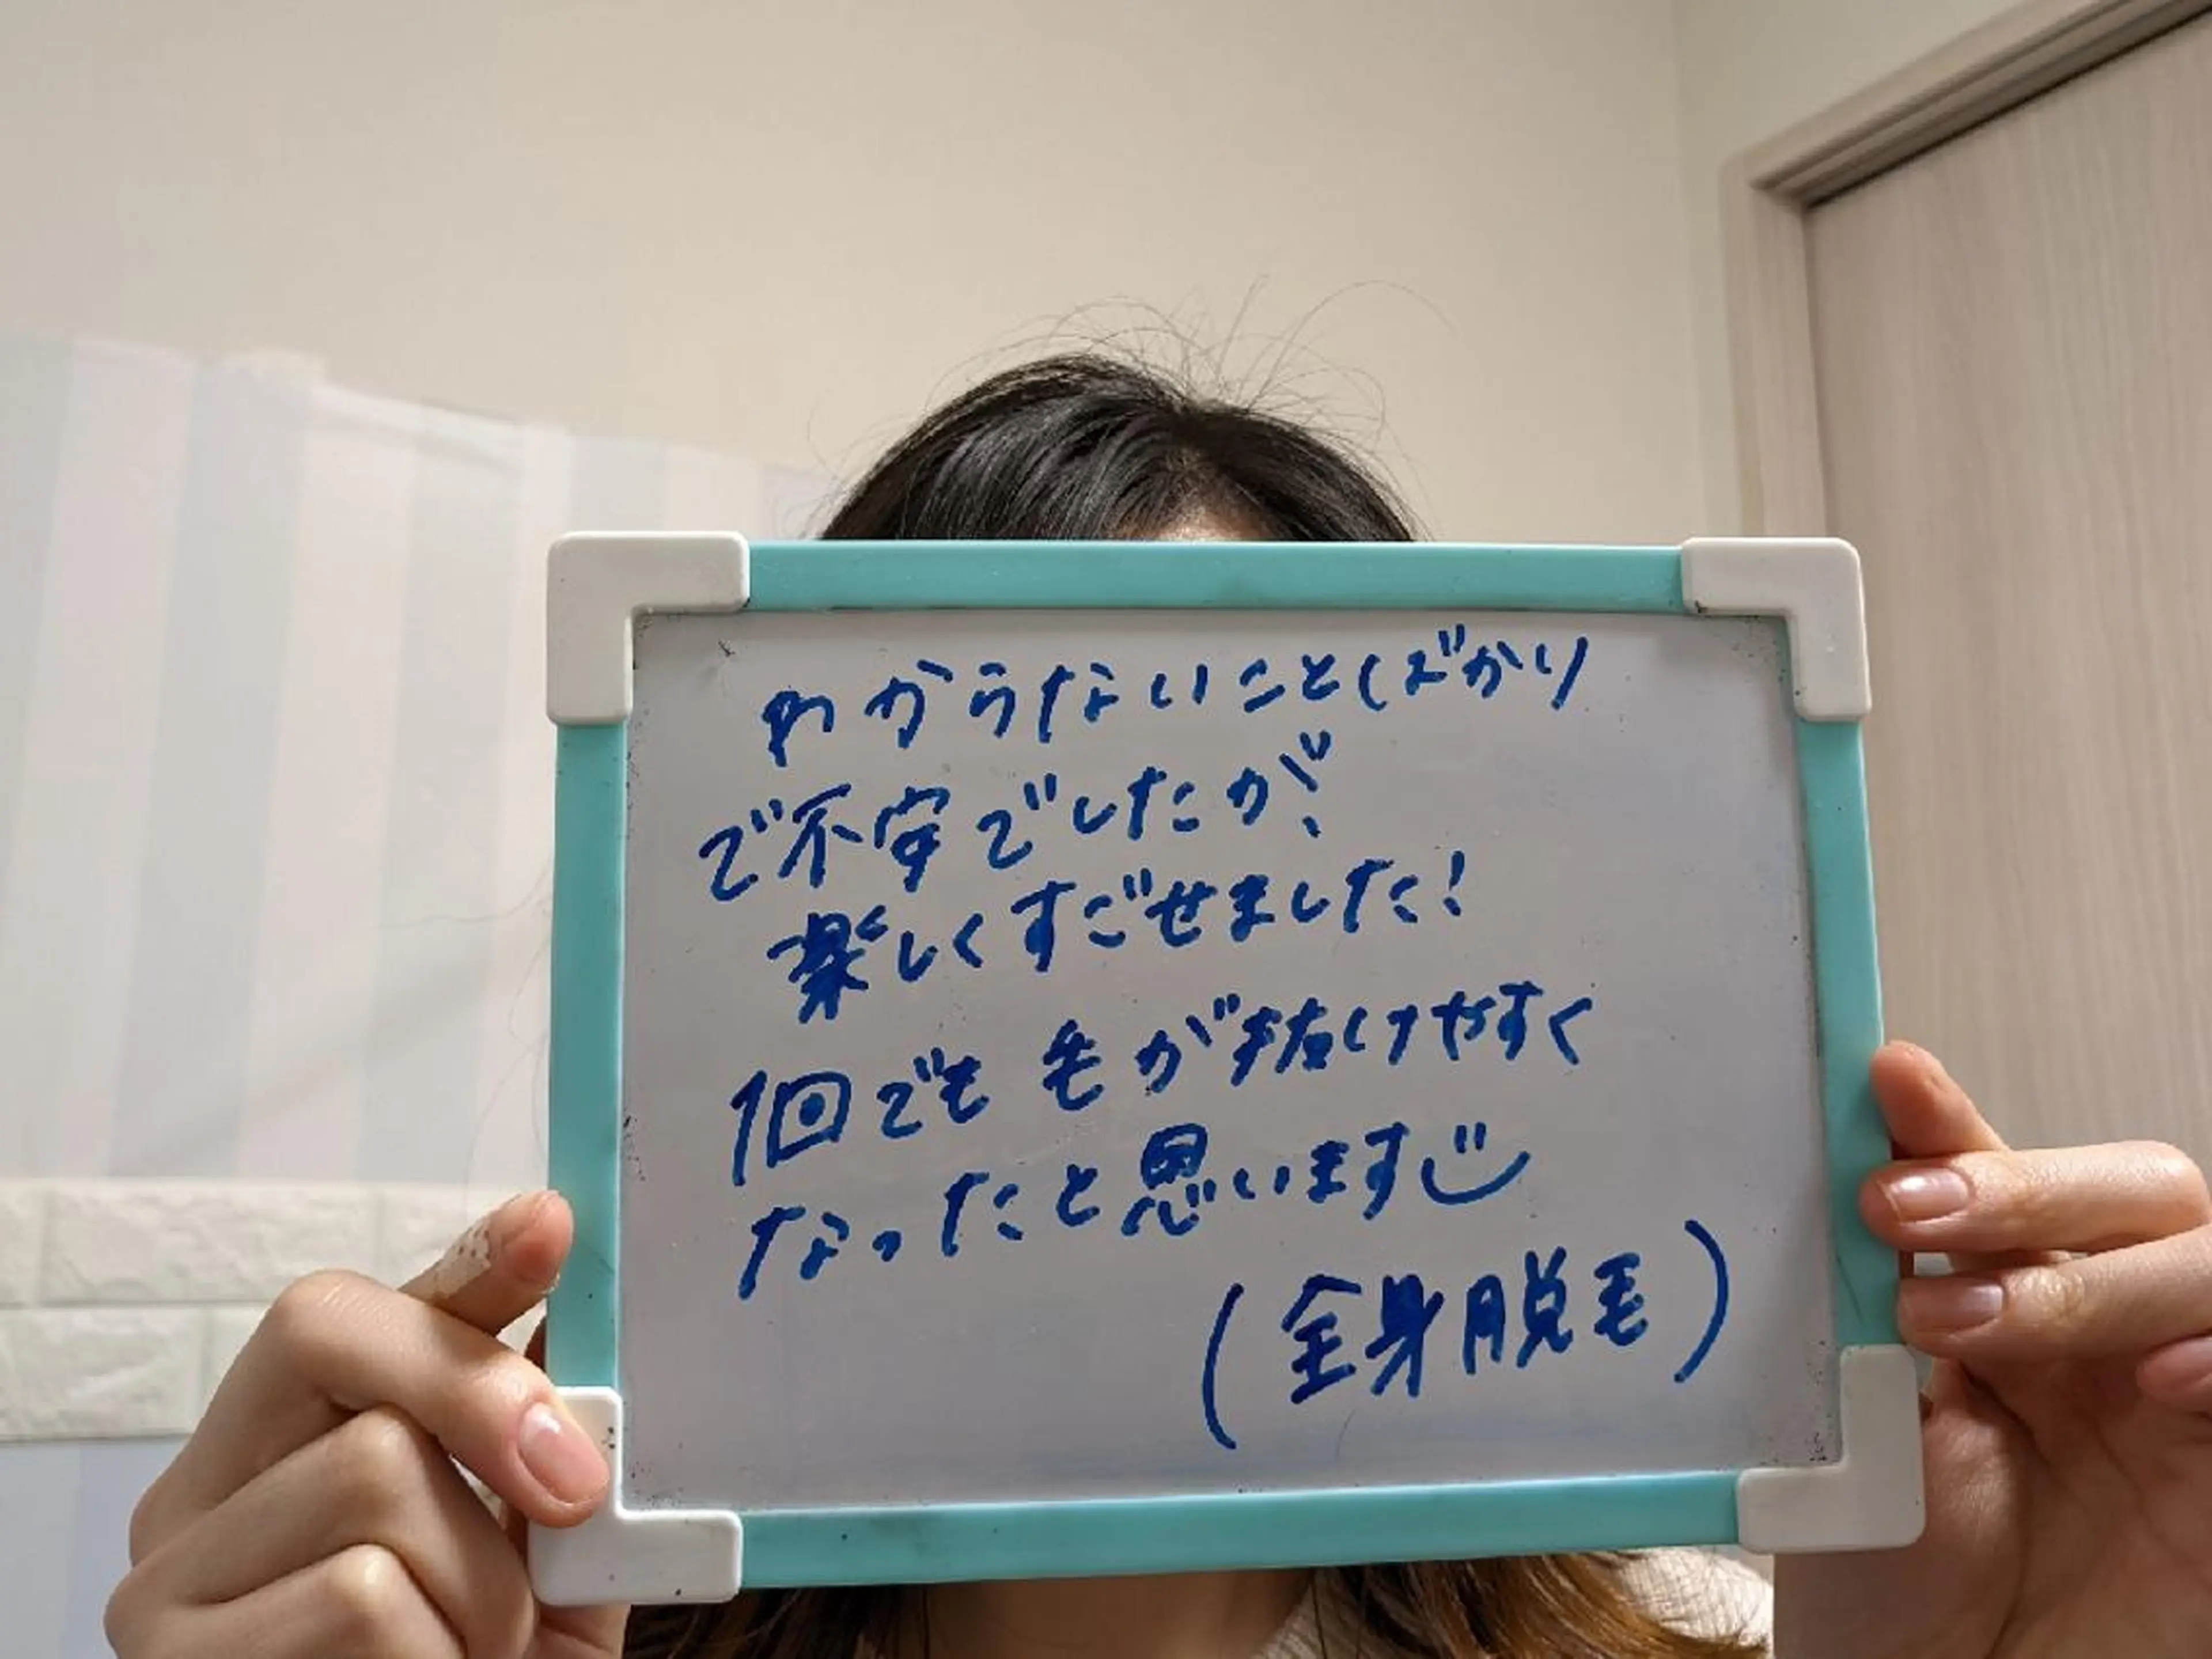 わからないことばかり
で不安でしたが、
楽しくすごせました！
1回でも毛が抜けやすく
なったと思います
（全身脱毛）